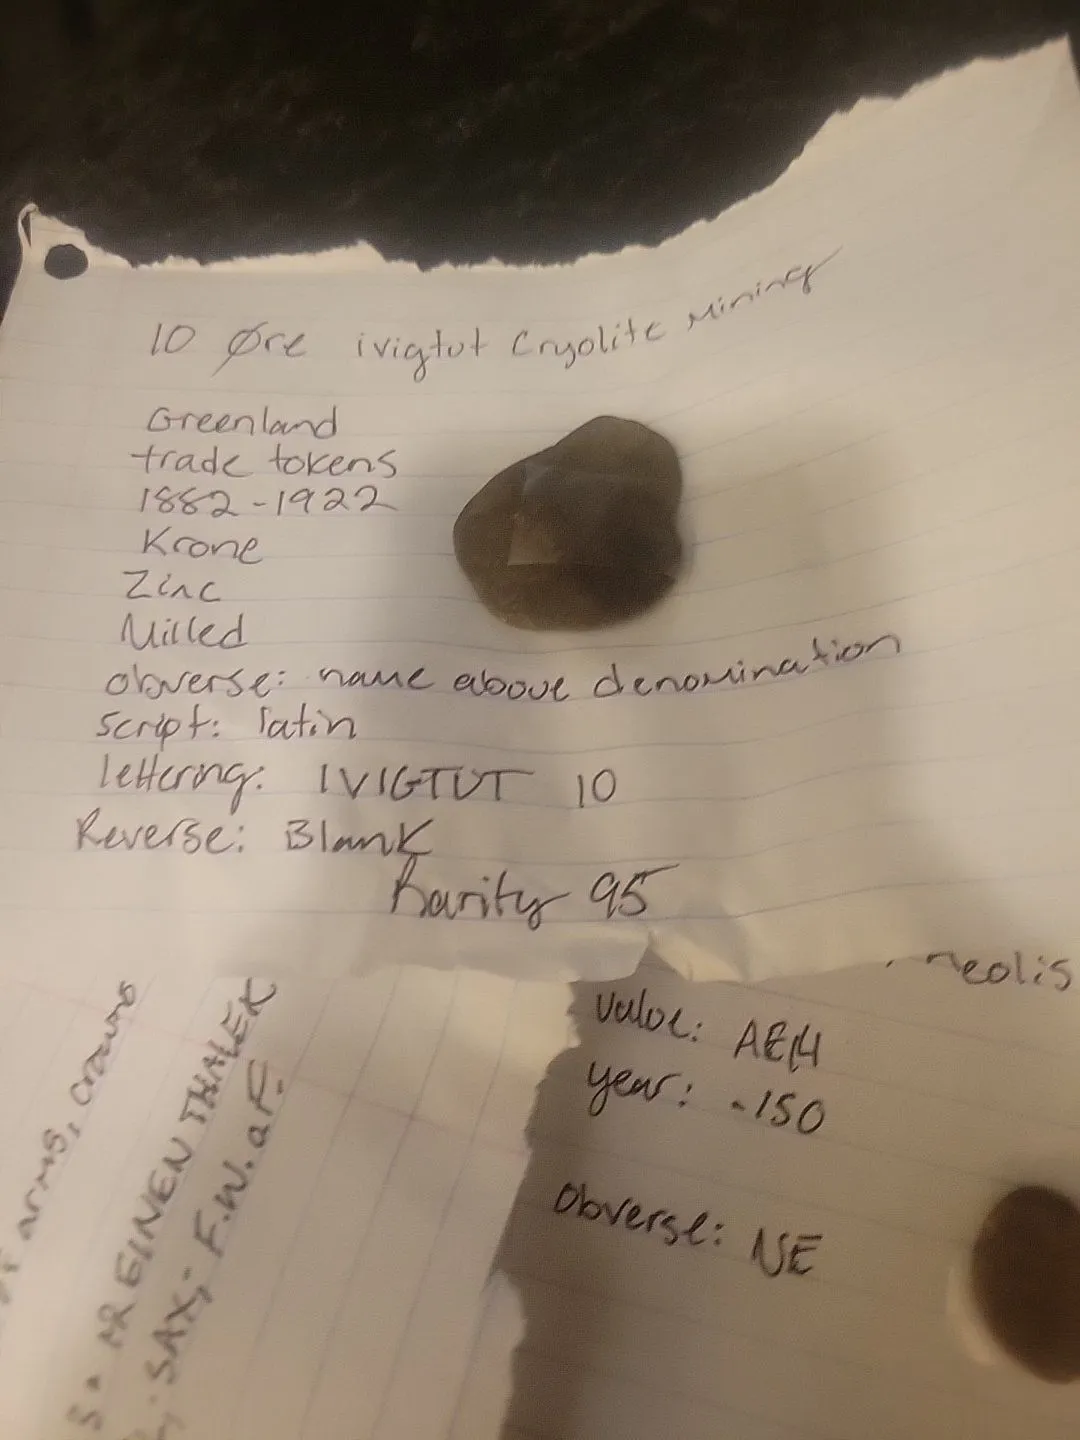 10 Øre ivigtut Cryolite Mining
Greenland
trade tokens
1882-1922
Krone
Zinc
Milled
obverse: name above denomination
script: latin
lettering: IVIGTUT 10
Reverse: Blank
Rarity 95
neolis
value: AE14
year: -150
Obverse: NE
arms, crowns
EINEN THALER
SAX; F.W.a.F.